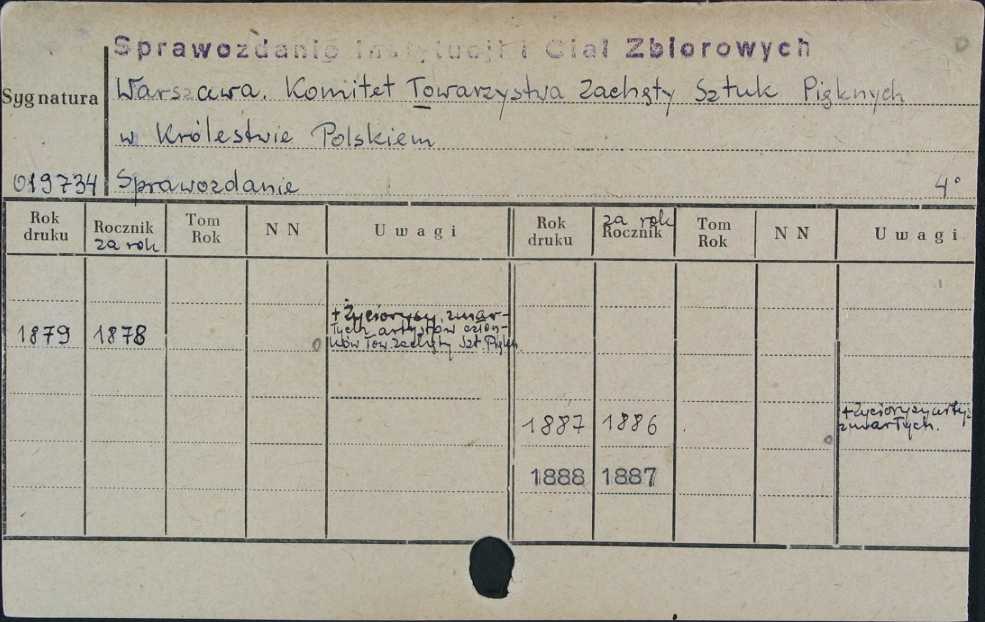 Sprawozdanie Instytucji i Ciał Zbiorowych
Sygnatura
Warszawa. Komitet Towarzystwa Zachęty Sztuk Pięknych
w Królestwie Polskiem
019734 Sprawozdanie 4°
Rok druku Rocznik za rok Tom Rok N N Uwagi Rok druku za rok Rocznik Tom Rok N N Uwagi
1879 1878 + Życiorysy zmar-
łych artystów człon-
ków Tow. Zachęty Szt. Pięk
1887 1886 + Życiorysy
zmarłych.
1888 1887